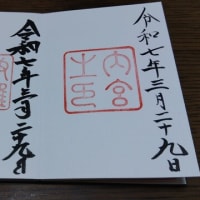 令和七年三月二十九日
内宮之印
令和七年三月二九日